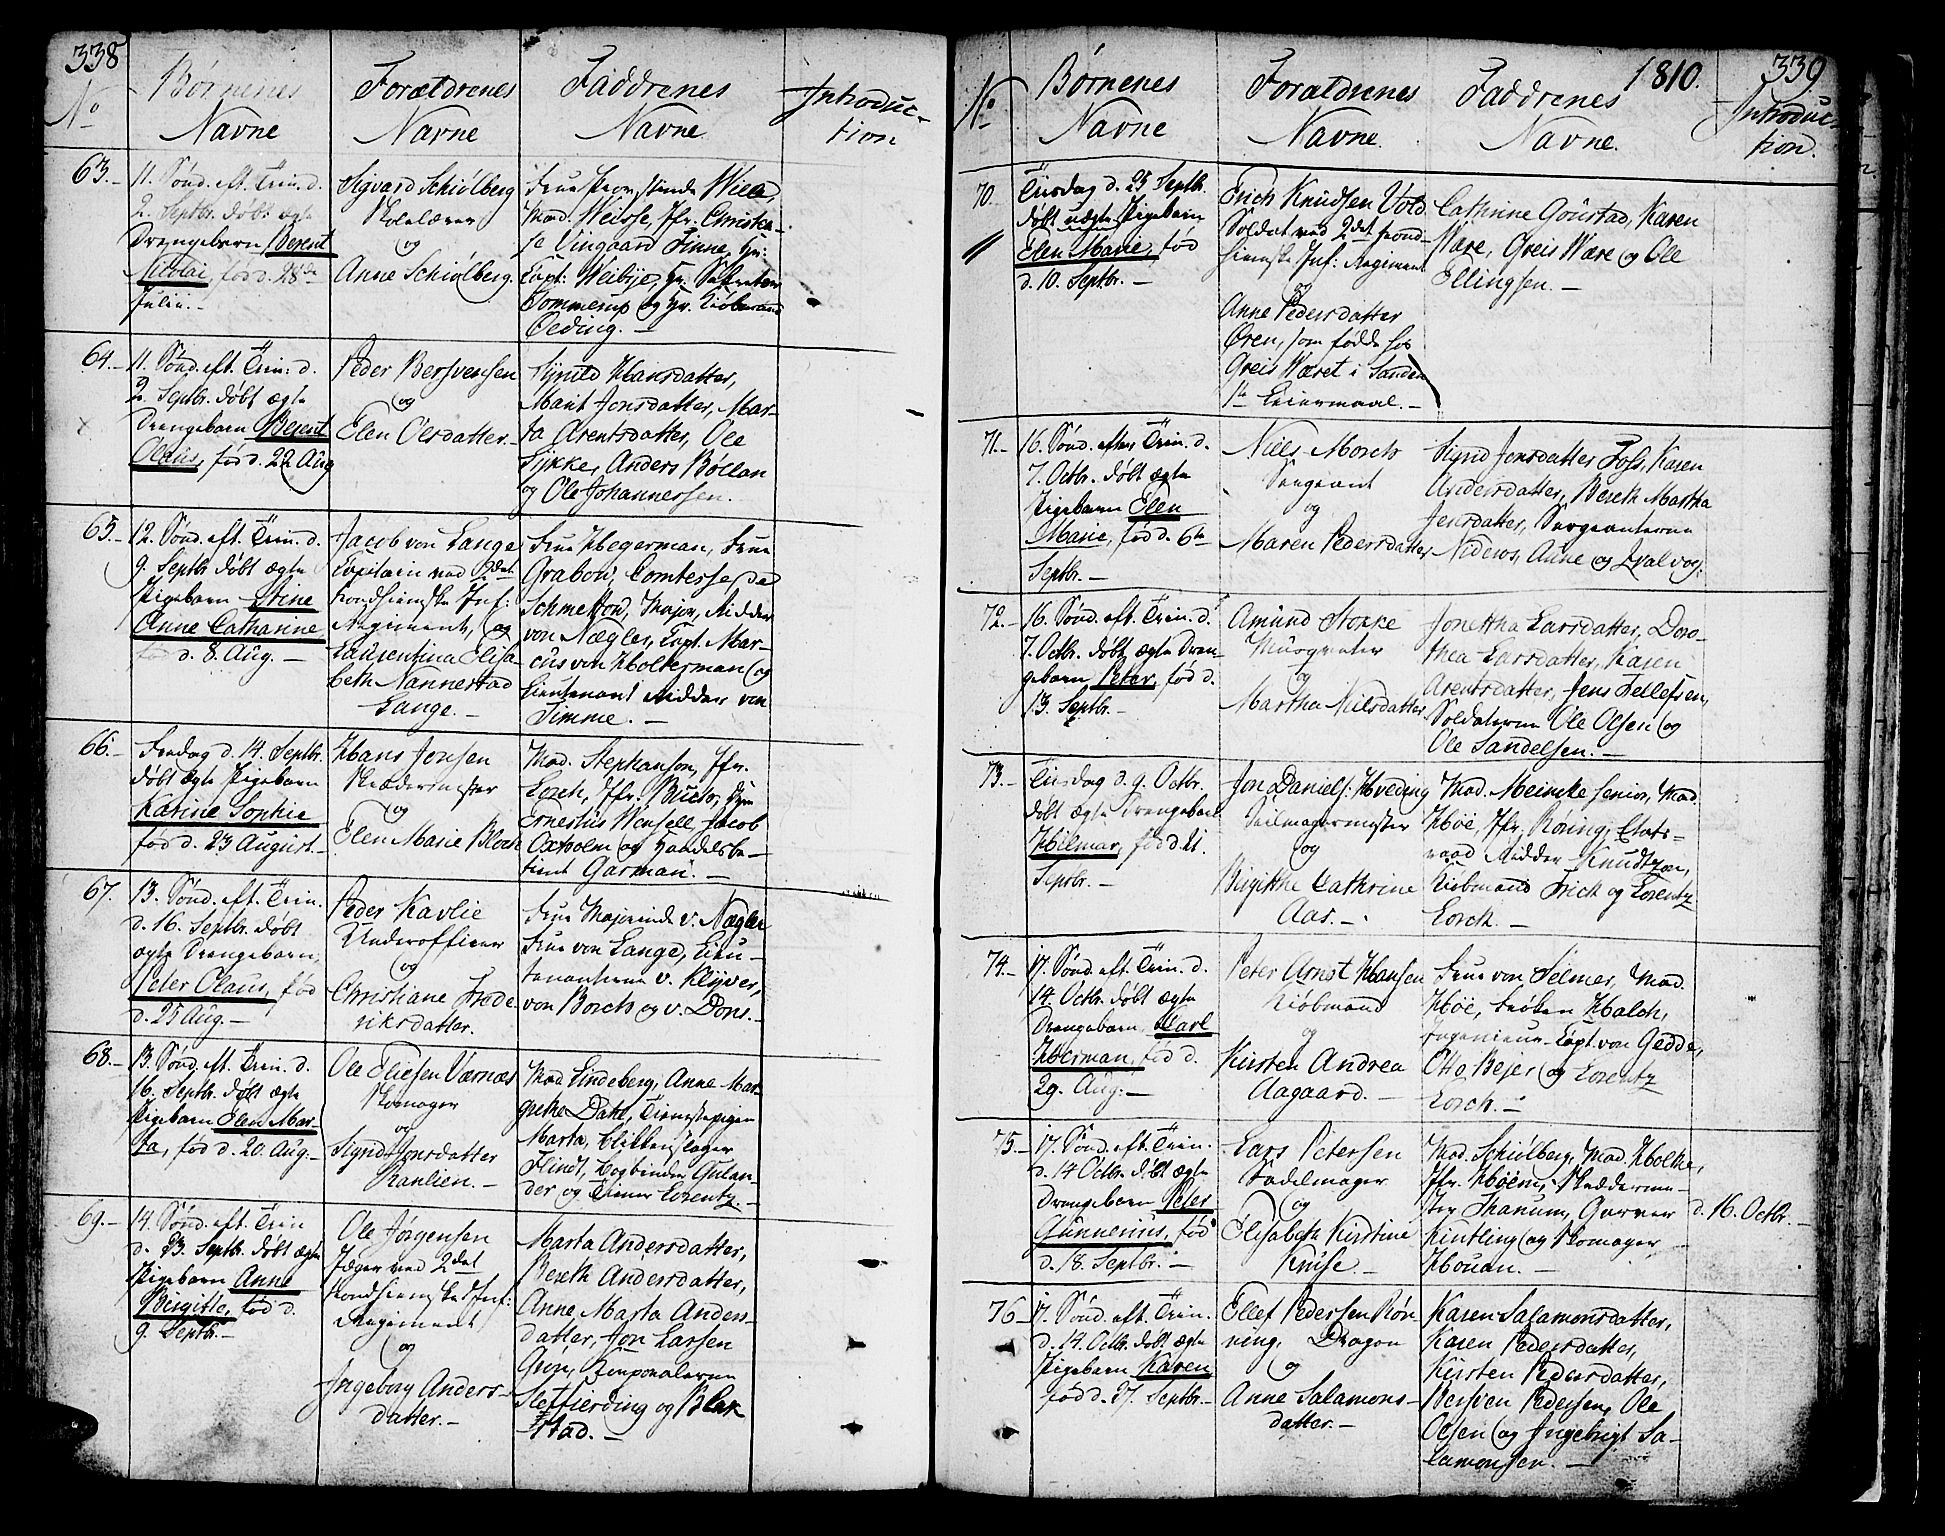 338
No
Børnenes
Navne
Forældrenes
Navne
Faddrenes
Navne
Introduc-
tion
63.-
11. Sönd. eft. Trin. d.
2. Septbr. døbt ægte
Drengebarn Berent
Nicolai, fød d. 28de
Julii.-
Sigvard Schiølberg
Skolelærer
og
Anne Schiølberg.
Frue Provstinde
Mad. Weisse, Jfr. Christia-
se Vingaard Finne, Hr.
Capt. Weibye, Hr.
Sommerup og Hr. Kiøbmand
Oeding.-
64.-
11. Sönd. eft. Trin: d.
2. Septbr. døbt ægte
Drengebarn Berent
Olaus, fød d. 22 Aug
Peder Bersvensen
og
Elen Olsdatter.-
Hansdatter,
Marit Jonsdatter, Mar-
ta Arentsdatter, Ole
Anders Böllan
og Ole Johannessen.
65.-
12. Sönd. eft. Trin. d.
9. Septbr døbt ægte
Pigebarn Stine
Anne Catharine
fød d. 8. Aug.-
Jacob von Lange
Capitain ved 2det
Trondhiemske Inf:
Regiment, og
Laurentina Elisa-
beth Nannestad
Lange.-
Frue Hegerman, Frue
Grabou, Comtesse de
Schmettow, Major, Ridder
von Nægler, Capt. Mar-
cus von Holterman og
Lieutenant Ridder von
Timme.-
66.-
Fredag d. 14. Septbr.
døbt ægte Pigebarn
Karine Sophie
fød d. 23 August.-
Hans Jensen
Skrædermester
og
Elen Marie Block
Mad. Stephanson, Jfr.
Lorck, Jfr. Buck, Hr.
Ernestus Wensell, Jacob
Oxholm og Handelsbe-
tient Garman.-
67.
13. Sönd. eft. Trin.
d. 16. Septbr. døbt
ægte Drengebarn,
Peter Olaus, fød
d. 25 Aug.-
Peder Kavlie
Underofficeer
og
Christiane Frede
riksdatter.
Frue Majorinde v. Nægler
Frue von Lange, Lieu-
tenanterne v. Klÿver,
von Borck og v. Dons.-
68.-
13. Sönd. eft. Trin. d.
16. Septbr. døbt ægte
Pigebarn Elen Mar-
ta, fød d. 20. Aug.-
Ole Eliesen Værnæs
Skomager
og
Sigrid Jonsdatter
Ranlien.-
Mad Lindeberg, Anne Mar-
grethe Dahl, Tienestepigen
Marta, Blikkenslager
Flindt, Bogbinder Gulan-
der og Tiener Lorentz.-
69.-
14. Sönd. eft. Trin
d. 23. Septbr. døbt ægte
Pigebarn Anne
Birgitte, fød d.
9. Septbr.-
Ole Jørgensen
Jæger ved 2det
Trondhiemske Inf:
Regiment
og
Ingeborg Anders-
datter.-
Marta Andersdatter,
Bereth Andersdatter,
Anne Marta Anders-
datter, Jon Larsen
Grön, Corporalerne
Steffierding og Blek
stad.-
1810.
339
No
Børnenes
Navne
Forældrenes
Navne.
Faddrenes
Navne.
Introduc-
tion.
70.
Tirsdag d. 25 Septbr.
døbt uægte Pigebarn
Elen Marie, fød
d. 10. Septbr.-
Erich Knudsen Vold
Soldat ved 2det Trond-
hiemske Inf: Regiment
og
Anne Pedersdatter
Øren, som fødde hos
Greis Wæret i Sanden
1te Leiermaal.-
Cathrine Goustad, Karen
Wære, Greis Wære og Ole
Ellingsen.-
71.-
16. Sönd. efter Trin. d.
7. Octbr. døbt ægte
Pigebarn Elen
Marie, fød d. 6te
Septbr.-
Niels Morch
Sergeant
og
Maren Pedersdatter
Sigrid Jonsdatter Foss, Karen
Andersdatter, Bereth Martha
Jensdatter, Sergeanterne
Nideros, Aune og Qvalvog.
72.-
16. Sönd. eft. Trin. d.
7. Octbr. døbt ægte Dren-
gebarn Peter, fød d.
13. Septbr.-
Amund Stokke
Muurmester
og
Martha Nilsdatter
Jonettha Larsdatter, Doro-
thea Larsdatter, Karen
Arentsdatter, Jens Tellefsen,
Soldaterne Ole Olsen og
Ole Sandelsen.-
73.-
Tirsdag d. 9. Octbr.
døbt ægte Drengebarn
Hilmar, fød d. 21.
Septbr.-
Jon Daniels: Hveding
Seilmagermester
og
Birgitte Cathrine
Aas.-
Mad. Meincke senior, Mad.
Høe, Jfr. Röring, Etats-
raad Ridder Knudtzon,
Kiøbmand Frick og Lorentz
Lorck.-
74.-
17. Sönd. eft. Trin. d.
14. Octbr. døbt ægte
Drengebarn Carl
Herman, fød d.
29. Aug:-
Peter Arnst Hansen
Kiøbmand
og
Kirsten Andrea
Aagaard.-
Frue von Selmer, Mad.
Høe, Frøken Halch,
Ingenieur-Capt. von Gedde,
Otto Bejer og Lorentz
Lorck.-
75.-
17. Sönd. eft. Trin.
d. 14 Octbr. døbt ægte
Drengebarn Peter
Gunnerius, fød
d. 18. Septbr:-
Lars Petersen
Sadelmager
og
Elisabeth Kirstine
Kruse.-
Mad. Schiølberg, Mad. Holte,
Jfr. Høern, Skrædderme-
ster Thanum, Garver
Kintling og Skomager
Houan.-
d. 16. Octbr.-
76-
17. Sönd. eft. Trin.
d. 14. Octbr. døbt ægte
Pigebarn Karen
fød d. 27. Septbr.-
Ellef Pedersen Røn
ning, Dragon
og
Anne Salamons-
datter.-
Karen Salamonsdatter,
Karen Pedersdatter,
Kirsten Pedersdatter,
Bersven Pedersen, Ole
Olsen og Ingebrigt Sa-
lamonsen.-